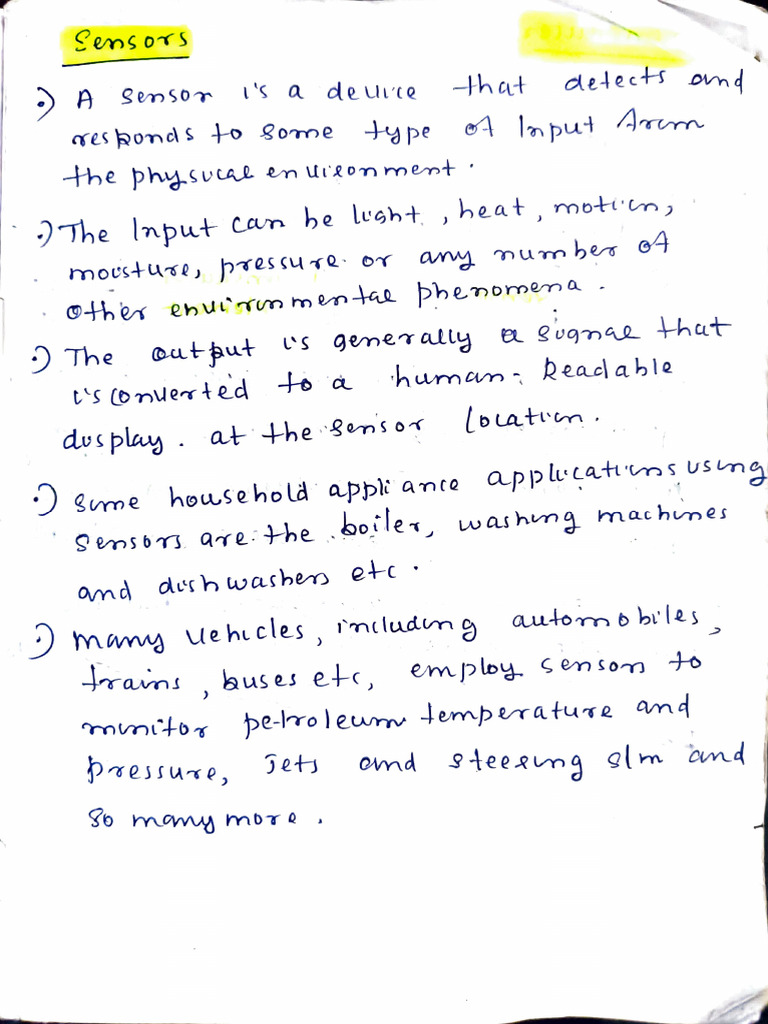 Sensors
•) A sensor is a device that detects and
responds to some type of Input from
the physical environment.
•) The Input can be light, heat, motion,
moisture, pressure or any number of
other environmental phenomena.
•) The output is generally a signal that
is converted to a human-Readable
display. at the sensor location.
•) some household appliance applications using
sensors are the boiler, washing machines
and dishwashers etc.
•) many vehicles, including automobiles,
trains, buses etc, employ sensors to
monitor petroleum temperature and
pressure, Jets and steering s/m and
so many more.